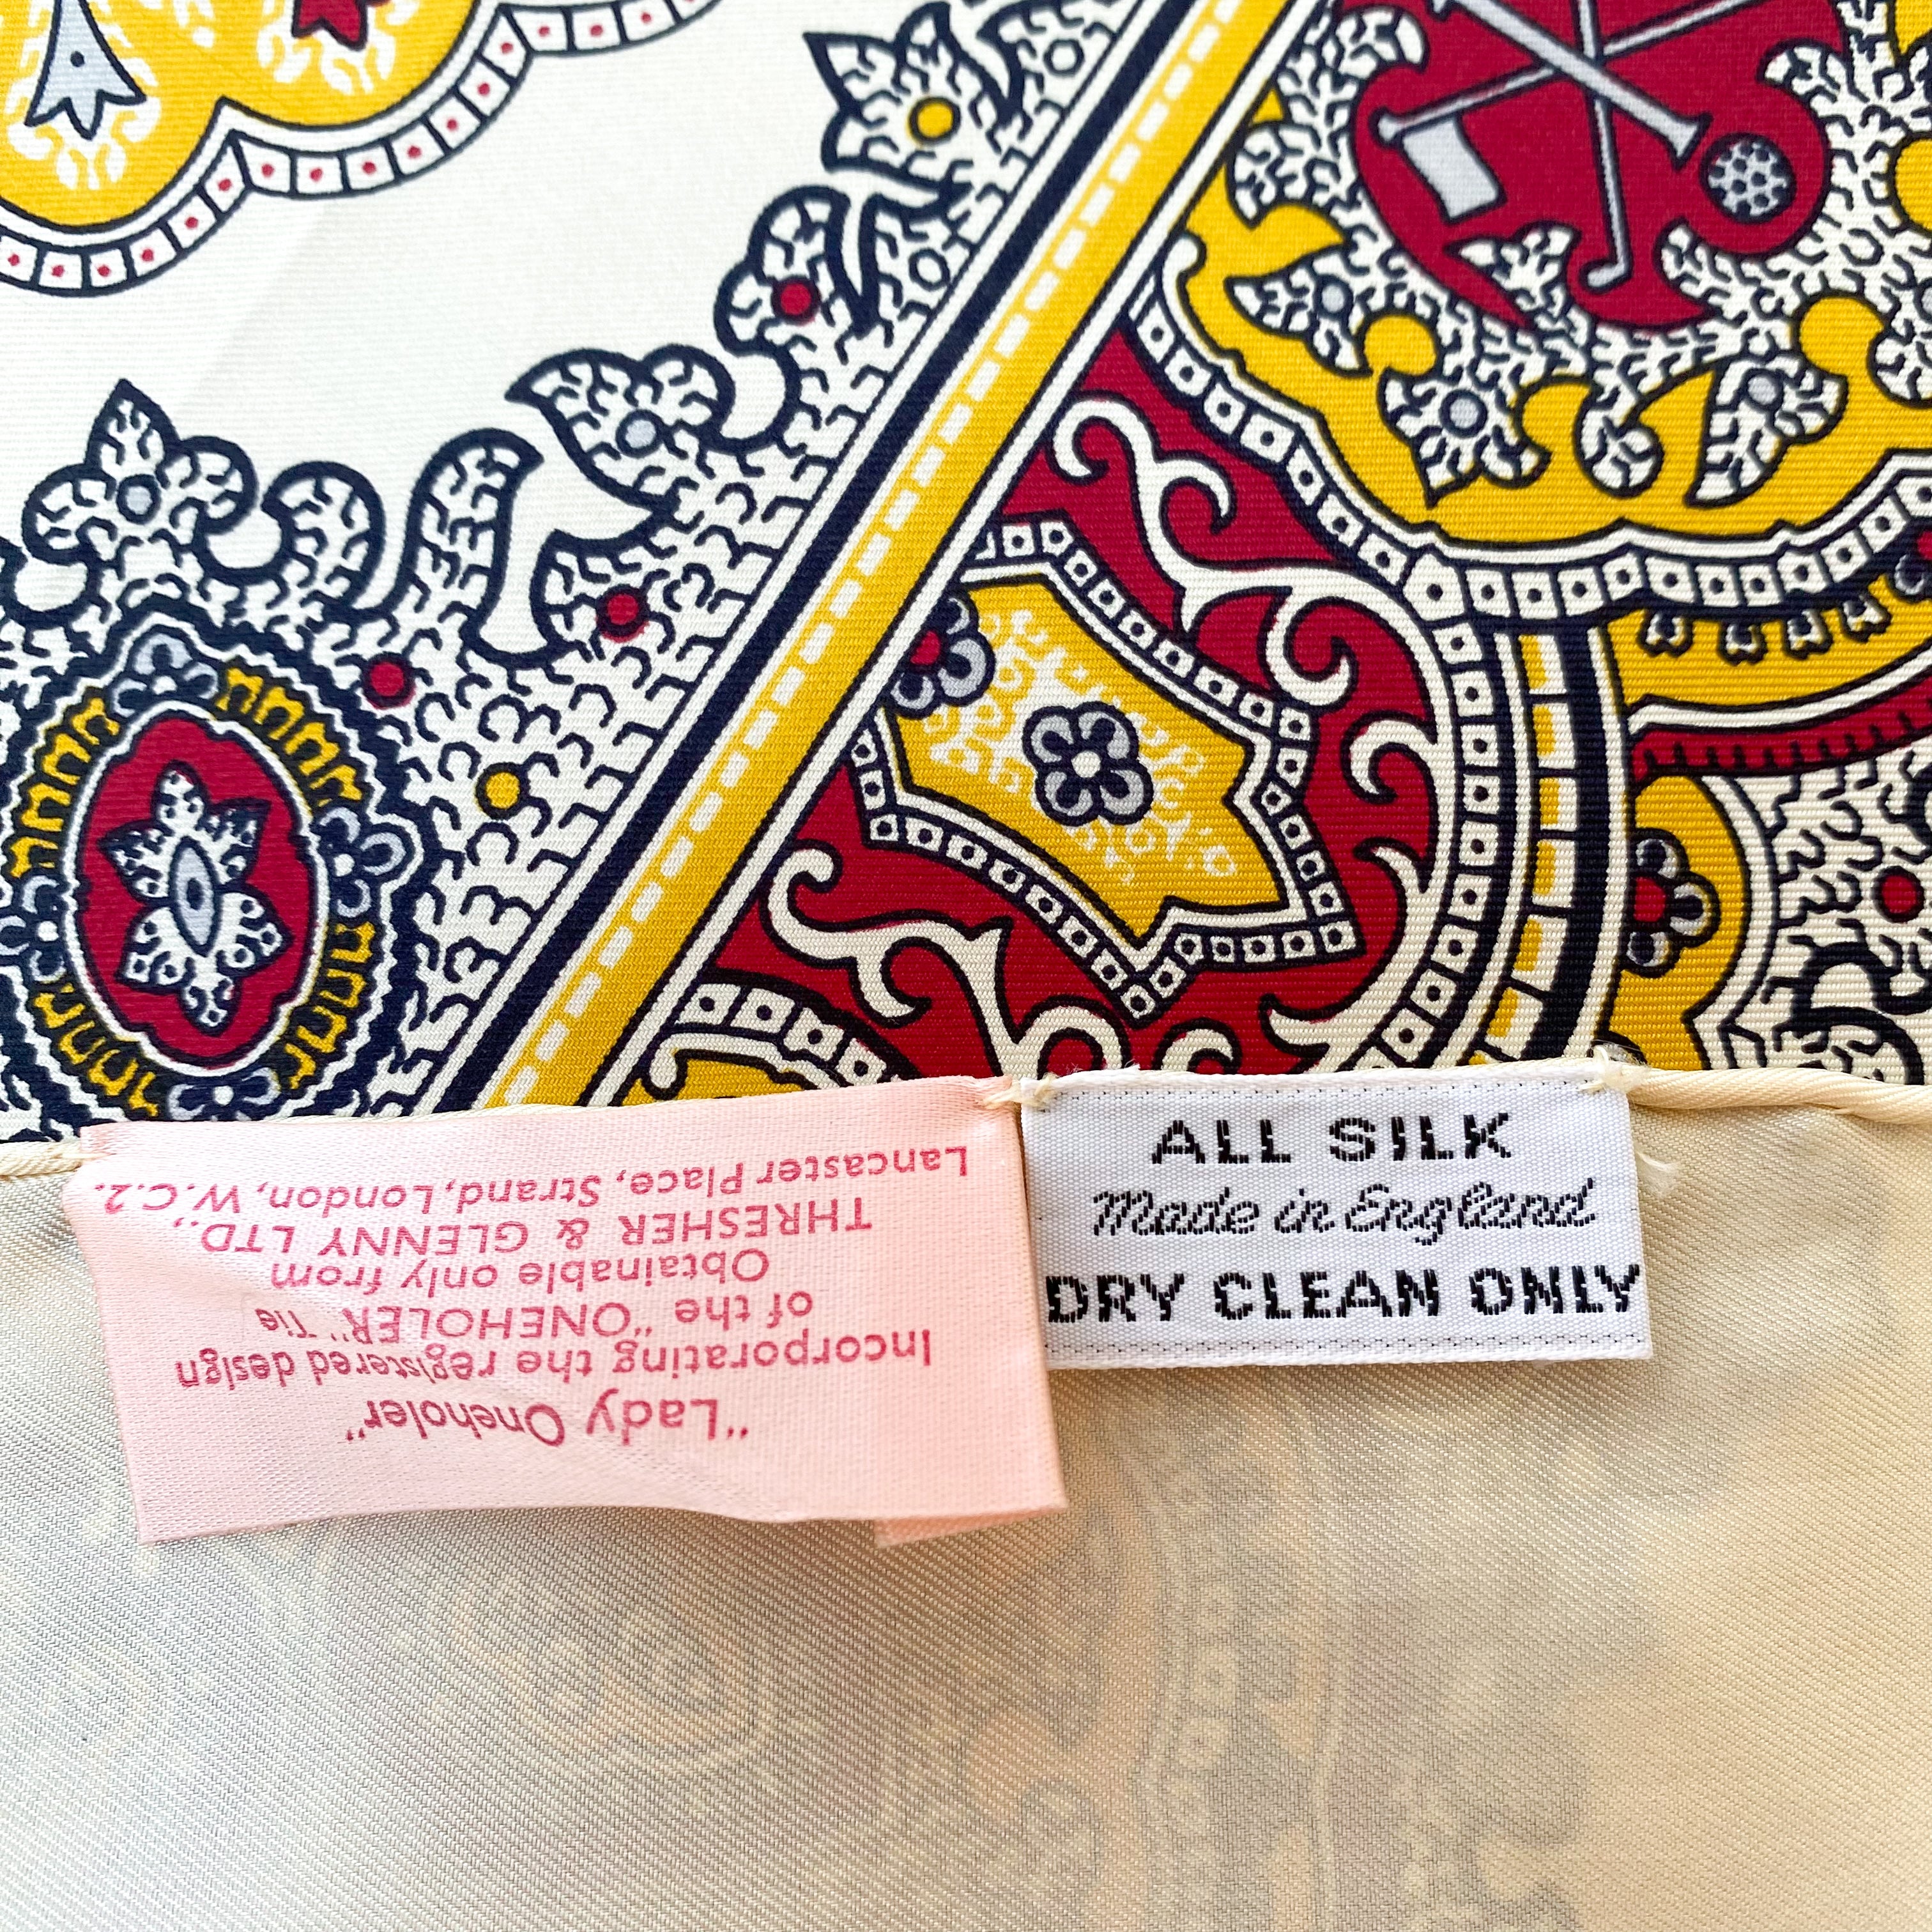 "Lady Oneholer"
Incorporating the registered design
of the "ONEHOLER" Tie
Obtainable only from
THRESHER & GLENNY LTD.,
Lancaster Place, Strand, London, W.C.2.
ALL SILK
Made in England
DRY CLEAN ONLY